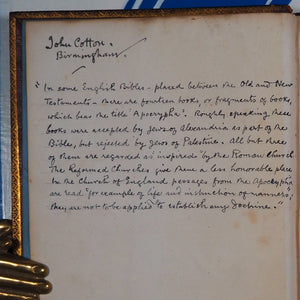 John Cotton.
Birmingham.
"In some English Bibles - placed between the Old and New
Testaments - there are fourteen books, or fragments of books,
which bear the title "Apocrypha". Roughly speaking these
books were accepted by Jews of Alexandria as part of the
Bible, but rejected by Jews of Palestine. All but three
of them are regarded as inspired by the Roman Church.
The Reformed Churches give them a less honorable place.
In the Church of England passages from the Apocrypha
are read "for example of life and instruction of manners";
they are not to be applied to establish any doctrine."